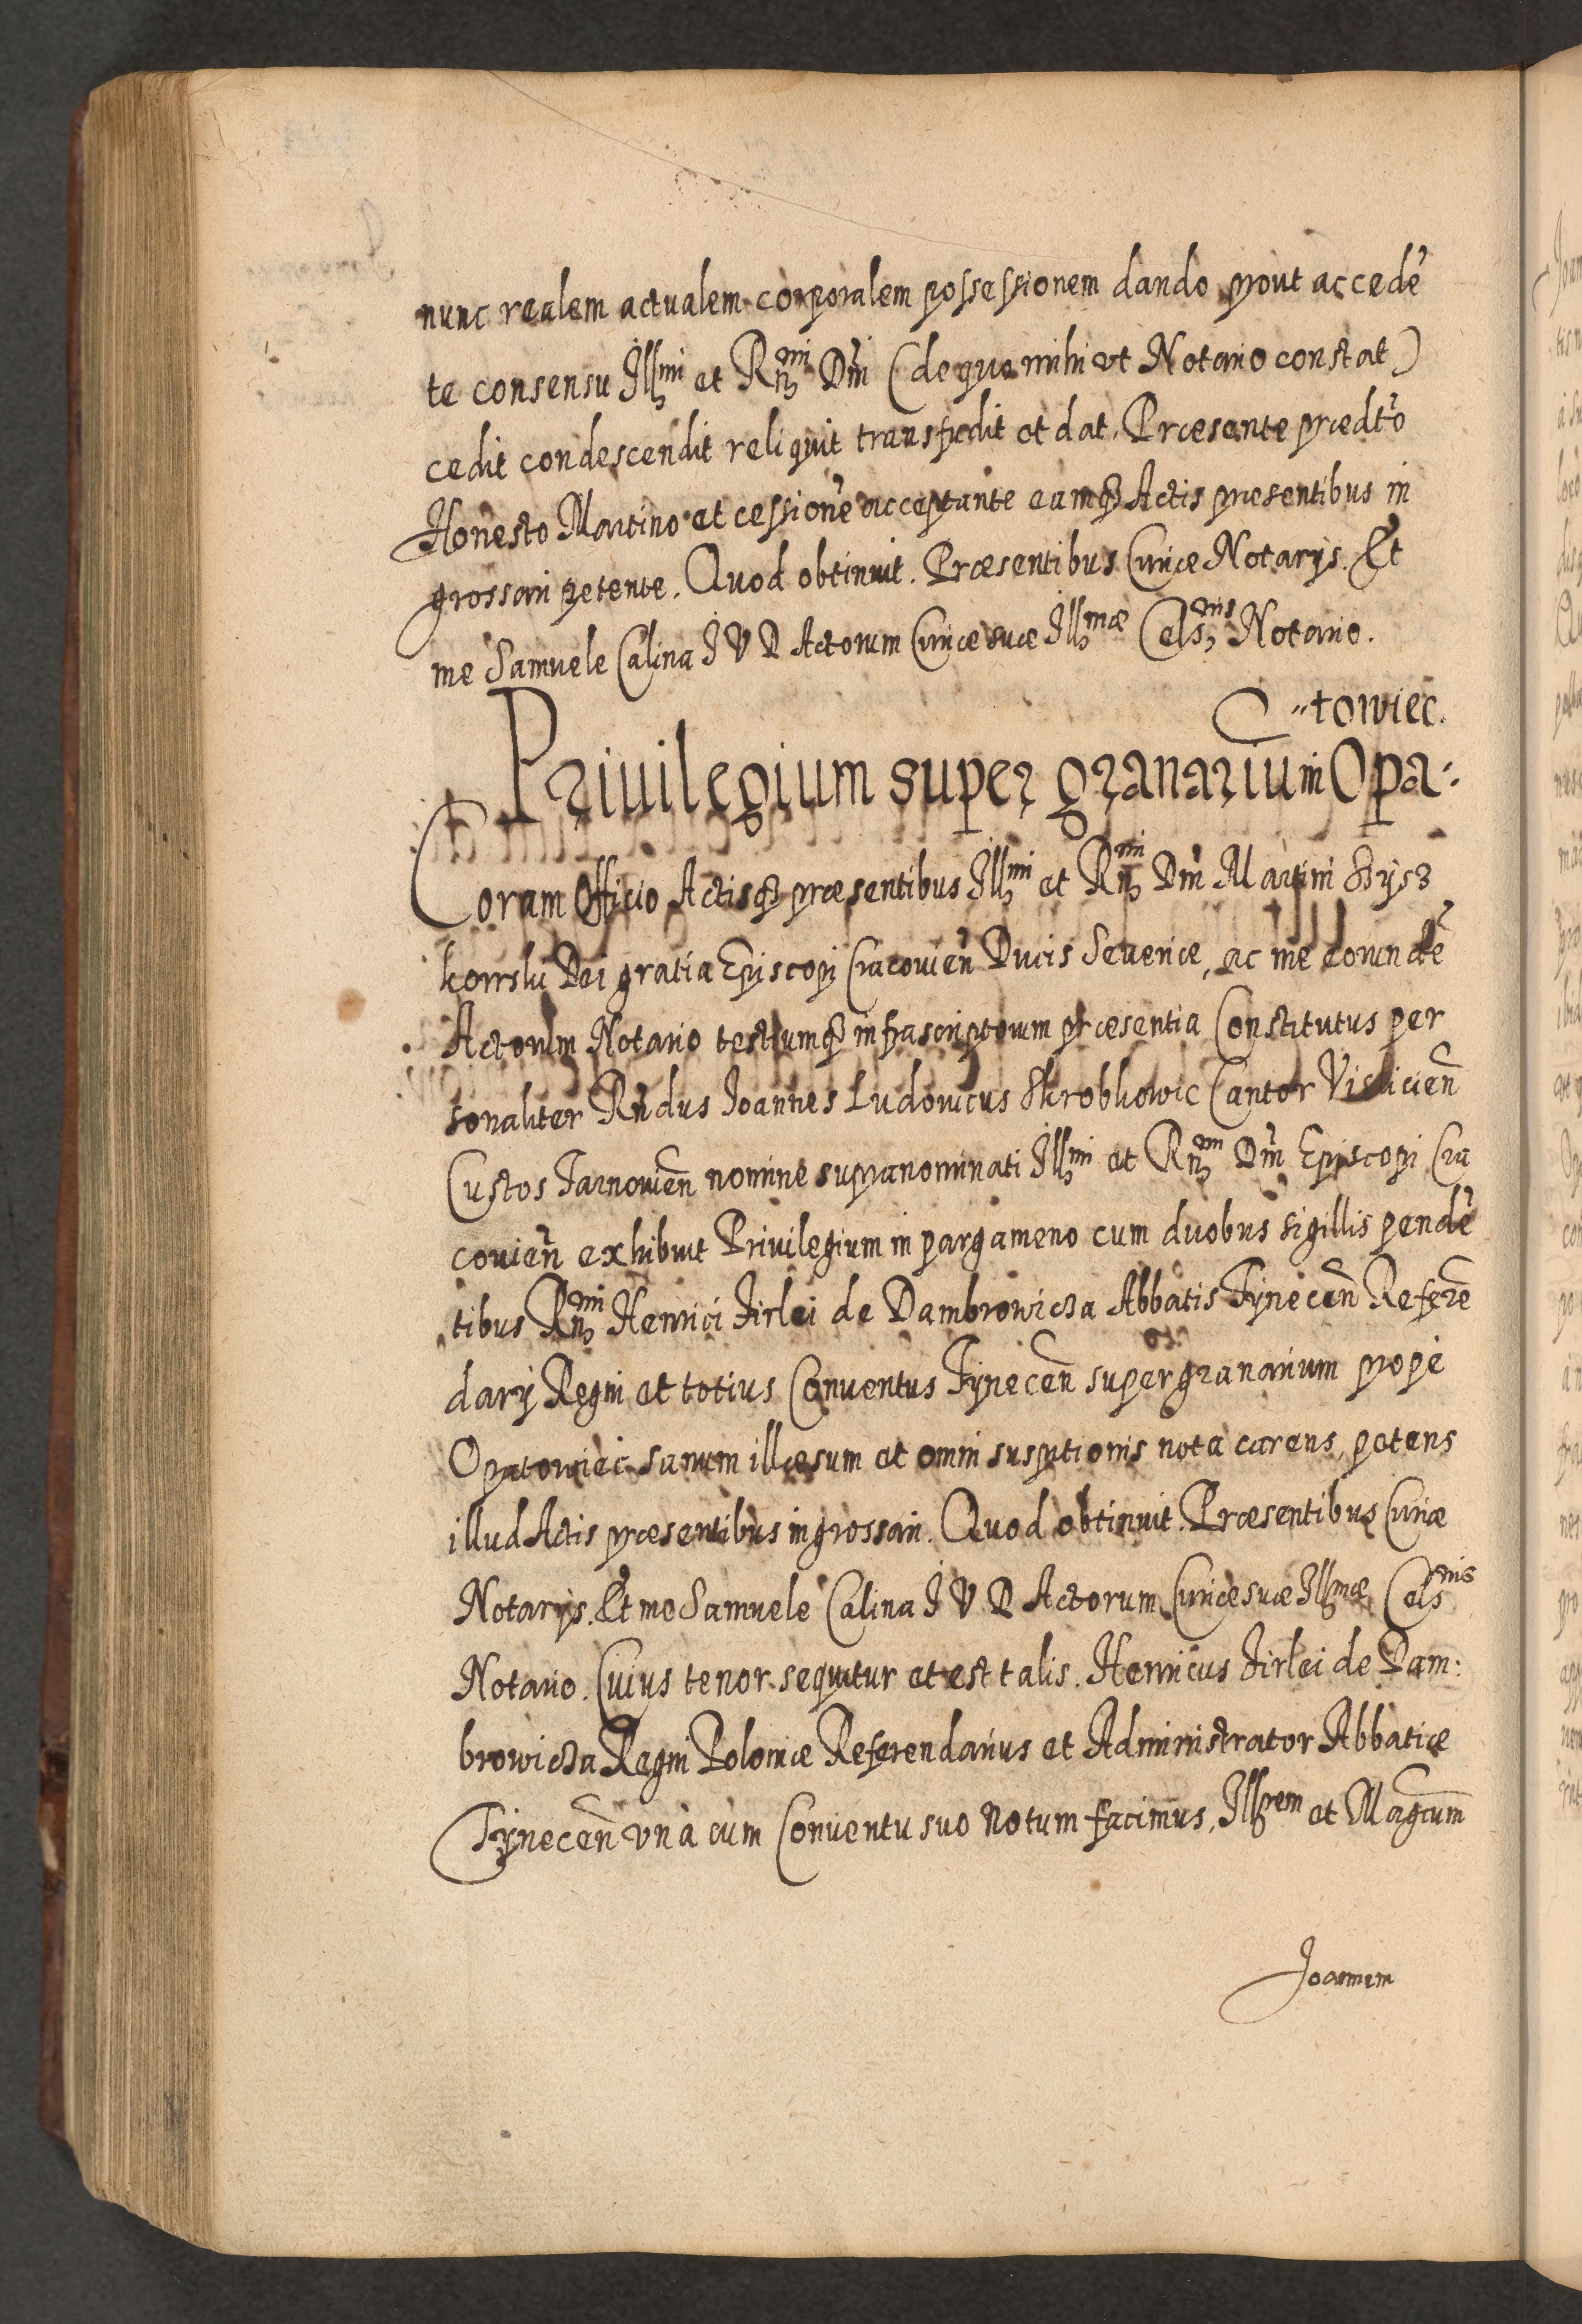 nunc realem actualem corporalem possessionem dando prout accedẽ
te consensu Illmi et Rñmi Dñi (de quo mihi ut Notario constat)
cedit condescendit reliquit transfudit et dat. Præsente prædto
Honesto Martino et cessionẽ acceptante eamq3 Actis præsentibus in
grossari petente. Quod obtinuit. Præsentibus Curiæ Notarijs. Et
me Samuele Calina I V D Actorum Curiæ suæ Illmæ Celsnis Notario.
"towiec.
Priuilegium super granarium Opa:
Coram Officio Actisq3 præsentibus Illmi et Rñmi Dñi Martini Szysz
kowski Dei gratia Episcopi Cracouieñ Ducis Seueriæ, ac me eorundẽ
Actorum Notario testiumq3 infrascriptorum præsentia Constitutus per
sonaliter Rñdus Joannes Ludouicus Skrobkowic Cantor Visliciẽn
Custos Tarnouieñ nomine supranominati Illmi et Rñmi Dñi Episcopi Cra
couieñ exhibuit Priuilegium in pargameno cum duobus sigillis pendẽ
tibus Rñmi Henrici Firlei de Dambrowicza Abbatis Tyneceñ Referẽ
darij Regni et totius Conuentus Tyneceñ super granarium prope
Opatowiec sanum illæsum et omni susptionis nota carens, petens
illud Actis præsentibus ingrossari. Quod obtinuit. Præsentibus Curiæ
Notarijs. Et me Samuele Calina I V D Actorum Curiæ suæ Illmæ Celsnis
Notario. Cuius tenor sequitur et est talis. Henricus Firlei de Dam:
browicza Regni Poloniæ Referendarius et Administrator Abbatiæ
Tyneceñ vnà cum Conuentu suo Notum facimus, Illrem et Magcum
Joannem